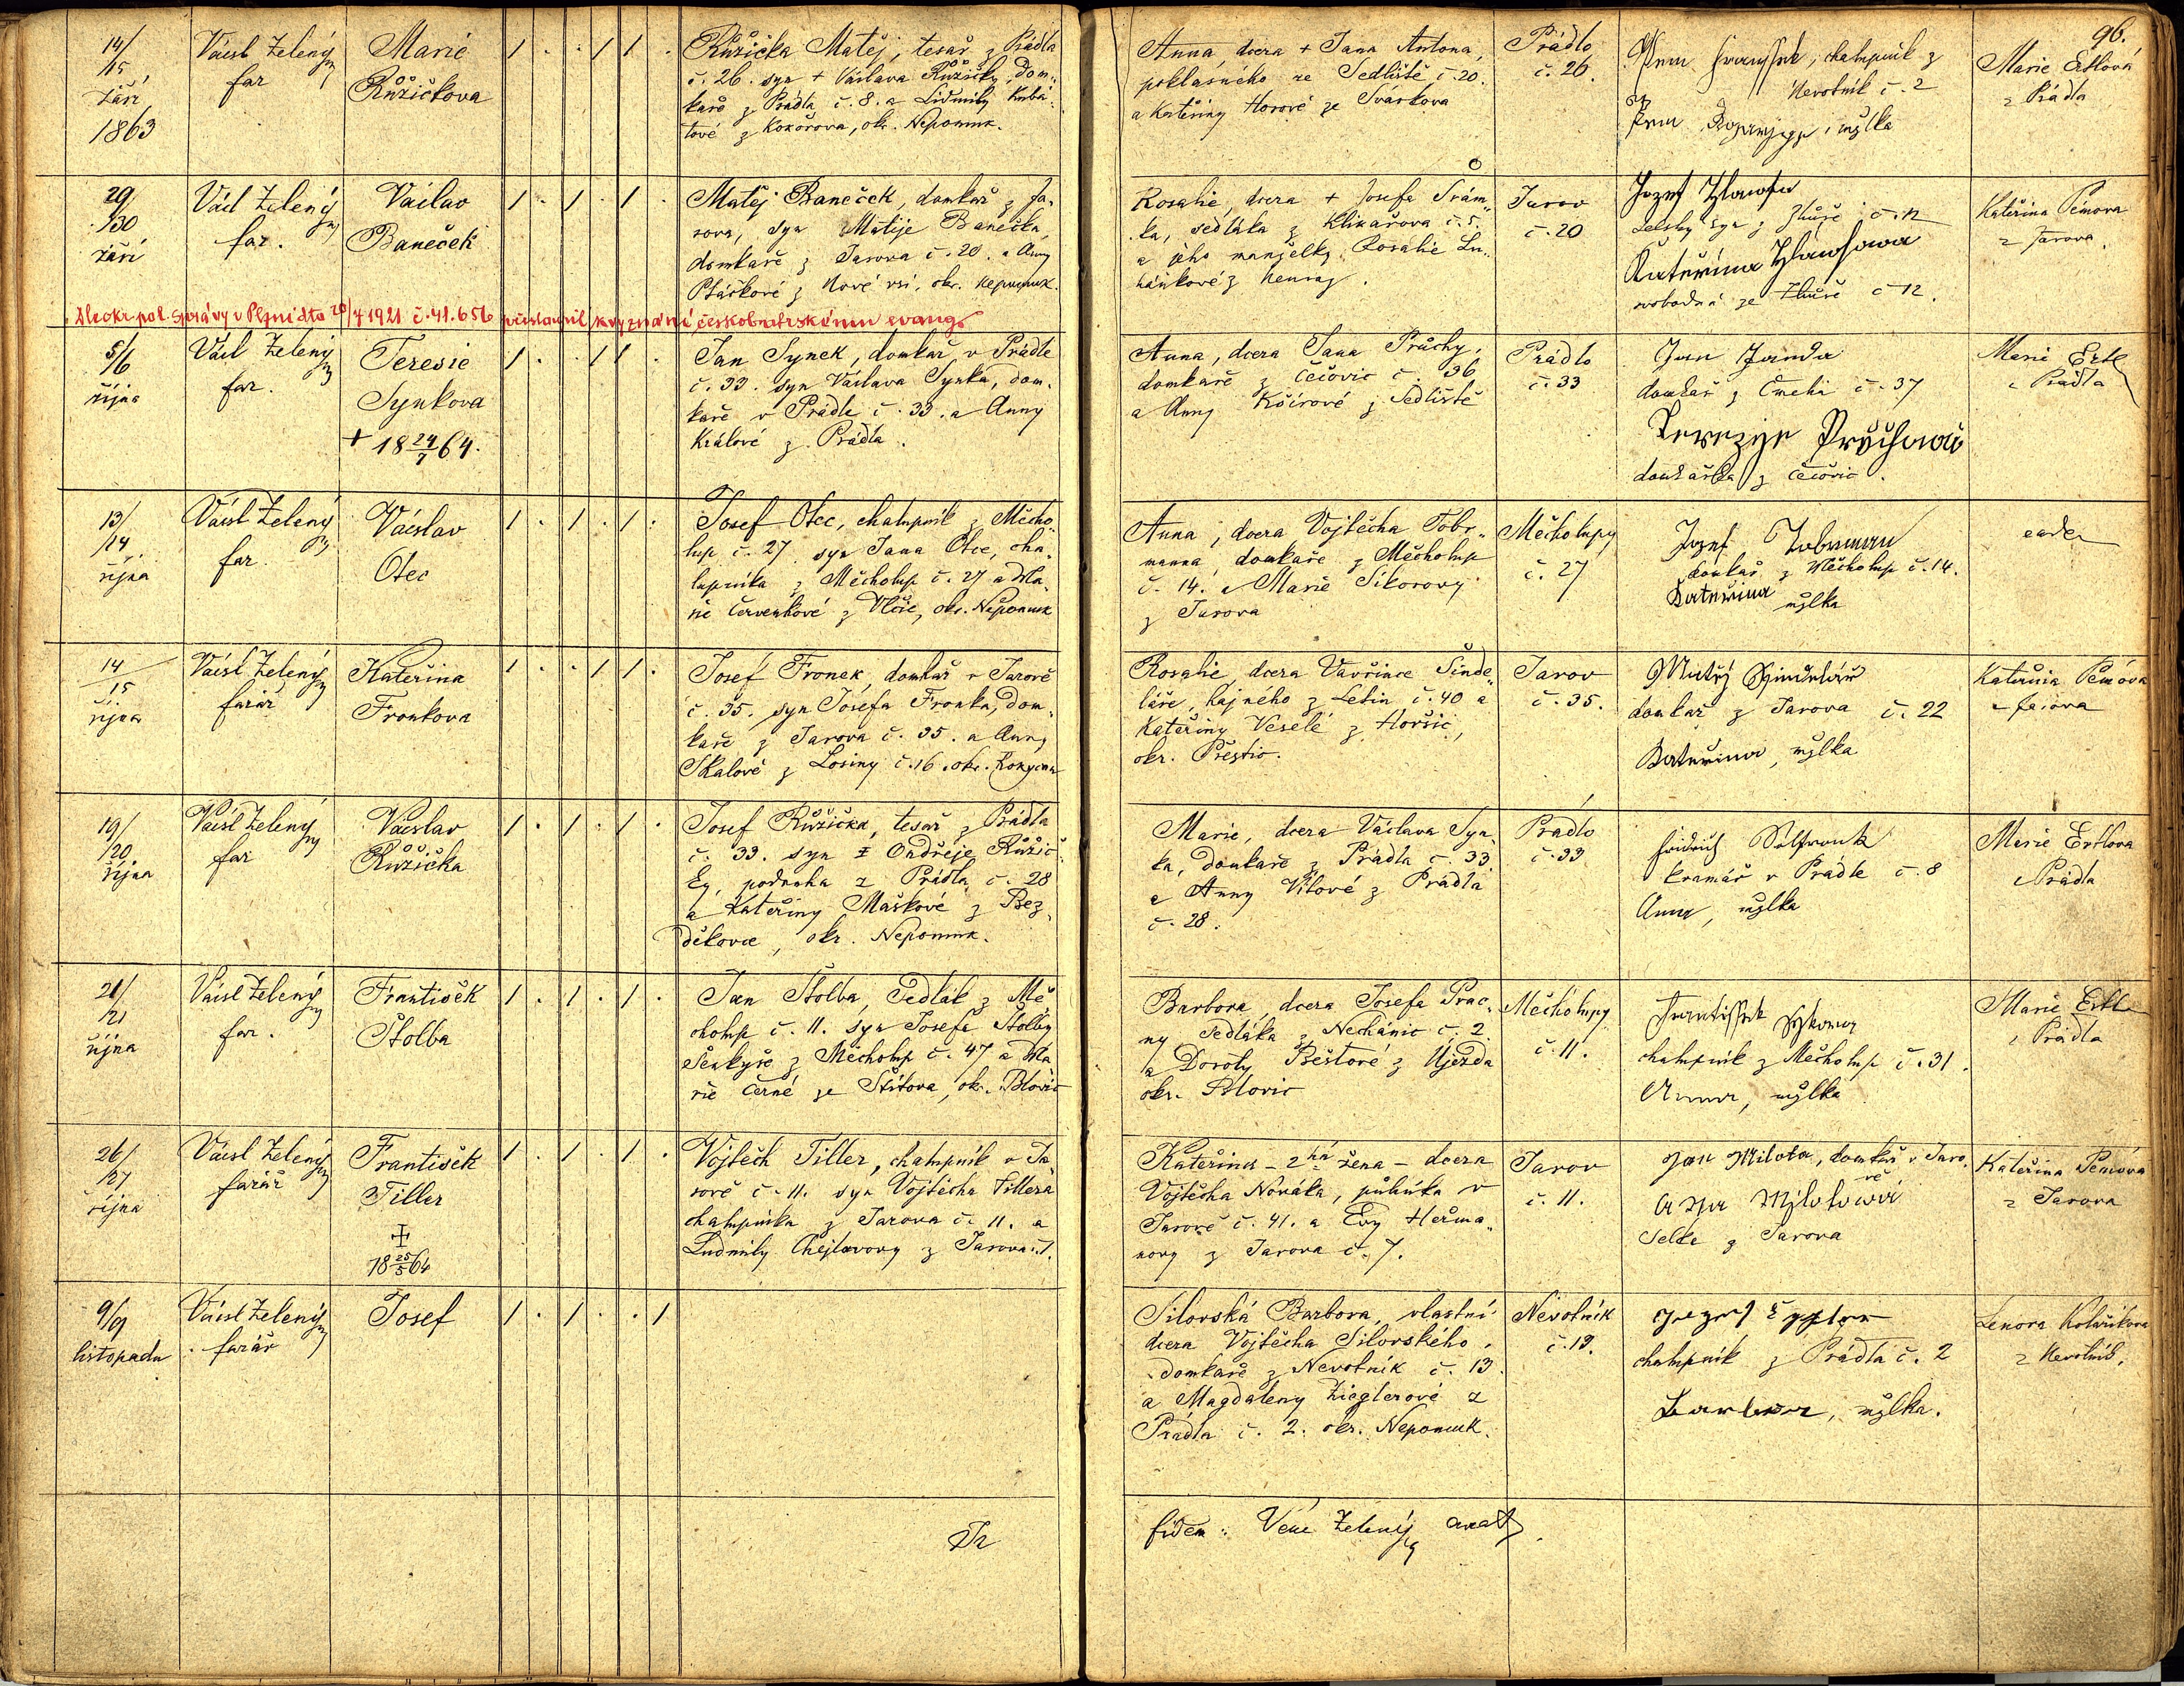 96.
14/
15
září
1863
Václ Zelený
far
Marie
Růžičkova
Růžička Matěj, tesař z Prádla
č. 26. syn + Václava Růžičky, dom-
kaře z Prádla č. 8. a Lidmily Kubá-
tové z Kokořova, okr. Nepomuk.
Anna, dcera + Jana Antona,
poklasného ze Sedliště č. 20.
a Kateřiny Horové ze Svárkova
Prádlo
č. 26.
chalupník z
Nevotník č. 2
mžlka
Marie Ertlová
z Prádla
29/
/30
září
Václ Zelený
far.
Václav
Baneček
Matěj Baneček, domkař z Ja-
rova, syn Matěje Banečka,
domkaře z Jarova č. 20. a Anny
Ptáčkové z Nové vsi, okr. Nepomuk.
Rosalie, dcera + Josefa Šrám-
ka, sedláka z Klikařova č. 5.
a jeho manželky Rosalie
Jarov
č. 20
Jozef
selský syn z č. 12
Kateřina
svobodná ze č 12.
Kateřina Pěmova
z Jarova.
Dle okr. pol. správy v Plzni dto 20/4 1921 č. 41.656 přistoupil k vyznání českobratrskému evang.
5/6
října
Václ Zelený
far.
Teresie
Synkova
+ 18 24/7 64.
Jan Synek, domkař v Prádle
č. 33. syn Václava Synka, dom-
kaře v Prádle č. 33. a Anny
Králové z Prádla.
Anna, dcera Jana Průchy,
domkaře z Čečovic č. 36
a Anny z Sedliště
Prádlo
č. 33
Jan Janda
domkař z č. 37
Terezye Průchová
domkářka z Čečovic.
Marie Ertl
z Prádla
13/
/14
října
Václ Zelený
far.
Václav
Otec
Josef Otec, chalupník z Měcho-
lup č. 27. syn Jana Otce, cha-
lupníka z Měcholup č. 27 a Ma-
rie Červenkové z Vlčic, okr. Nepomuk
Anna, dcera Vojtěcha Tobr-
manna, domkaře z Měcholup
č. 14. a Marie Sikorovy
z Jarova
Měcholupy
č. 27
Jozef Tobrman
domkař z Měcholup č. 14.
Kateřina mžlka
eadem
14
15
října
Václ Zelený
farář
Kateřina
Fronkova
Josef Fronek, domkař v Jarově
č. 35. syn Josefa Fronka, dom-
kaře z Jarova č. 35. a Anny
Skalové z Losiny č. 16. okr. Rokycan
Rosalie, dcera Vavřince Šinde-
láře, hajného z Letin č. 40 a
Kateřiny Veselé z Horšic,
okr. Přeštic.
Jarov
č. 35.
Matěj Šindelář
domkař z Jarova č. 22
Kateřina, mžlka
Kateřina Pěmova
z Jarova
19/
/20
října
Václ Zelený
far
Václav
Růžička
Josef Růžička, tesař z Prádla
č. 33. syn + Ondřeje Růžič-
ky, podruha z Prádla č. 28
a Kateřiny Maškové z Bez-
děkovce, okr. Nepomuk.
Marie, dcera Václava Syn-
ka, domkaře z Prádla č. 33
a Anny Vítové z Prádla
č. 28.
Prádlo
č. 33
kramář v Prádle č. 8
Anna, mžlka
Marie Ertlova
z Prádla
21/
21
října
Václ Zelený
far.
František
Štolba
Jan Štolba, Sedlák z Mě-
cholup č. 11. syn Josefa Štolby
Šenkýře z Měcholup č. 47 a Ma-
rie Černé ze Štítova, okr. Blovic
Barbora, dcera Josefa Prac-
ny Sedláka z Nechánic č. 2
a Doroty z Újezda
okr. Blovic
Měcholupy
č. 11.
František Sýkora
chalupník z Měcholup č. 31.
Anna, mžlka
Marie Ertl
z Prádla
26/
/27
října
Václ Zelený
farář
František
Tiller
18 25/5 64
Vojtěch Tiller, chalupník v Ja-
rově č. 11. syn Vojtěcha Tillera
chalupníka z Jarova č. 11. a
Ludmily Chejlavovy z Jarova č. 1.
Kateřina - 2há žena - dcera
Vojtěcha Nováka, v
Jarově č. 41. a Evy Heřma-
novy z Jarova č. 7.
Jarov
č. 11.
Jan Milota, domkař v Jaro-
vě
Anna Milotová
Selka z Jarova
Kateřina Pěmova
z Jarova
9/9
listopadu
Václ Zelený
farář
Josef
Silovská Barbora, vlastní
dcera Vojtěcha Silovského,
domkaře z Nevotník č. 13
a Magdaleny Zieglerové z
Prádla č. 2. okr. Nepomuk.
Nevotník
č. 13.
chalupník z Prádla č. 2
Barbora, mžlka.
Lenora Kolaříkova
z Nevotník.
fidem: Zelený